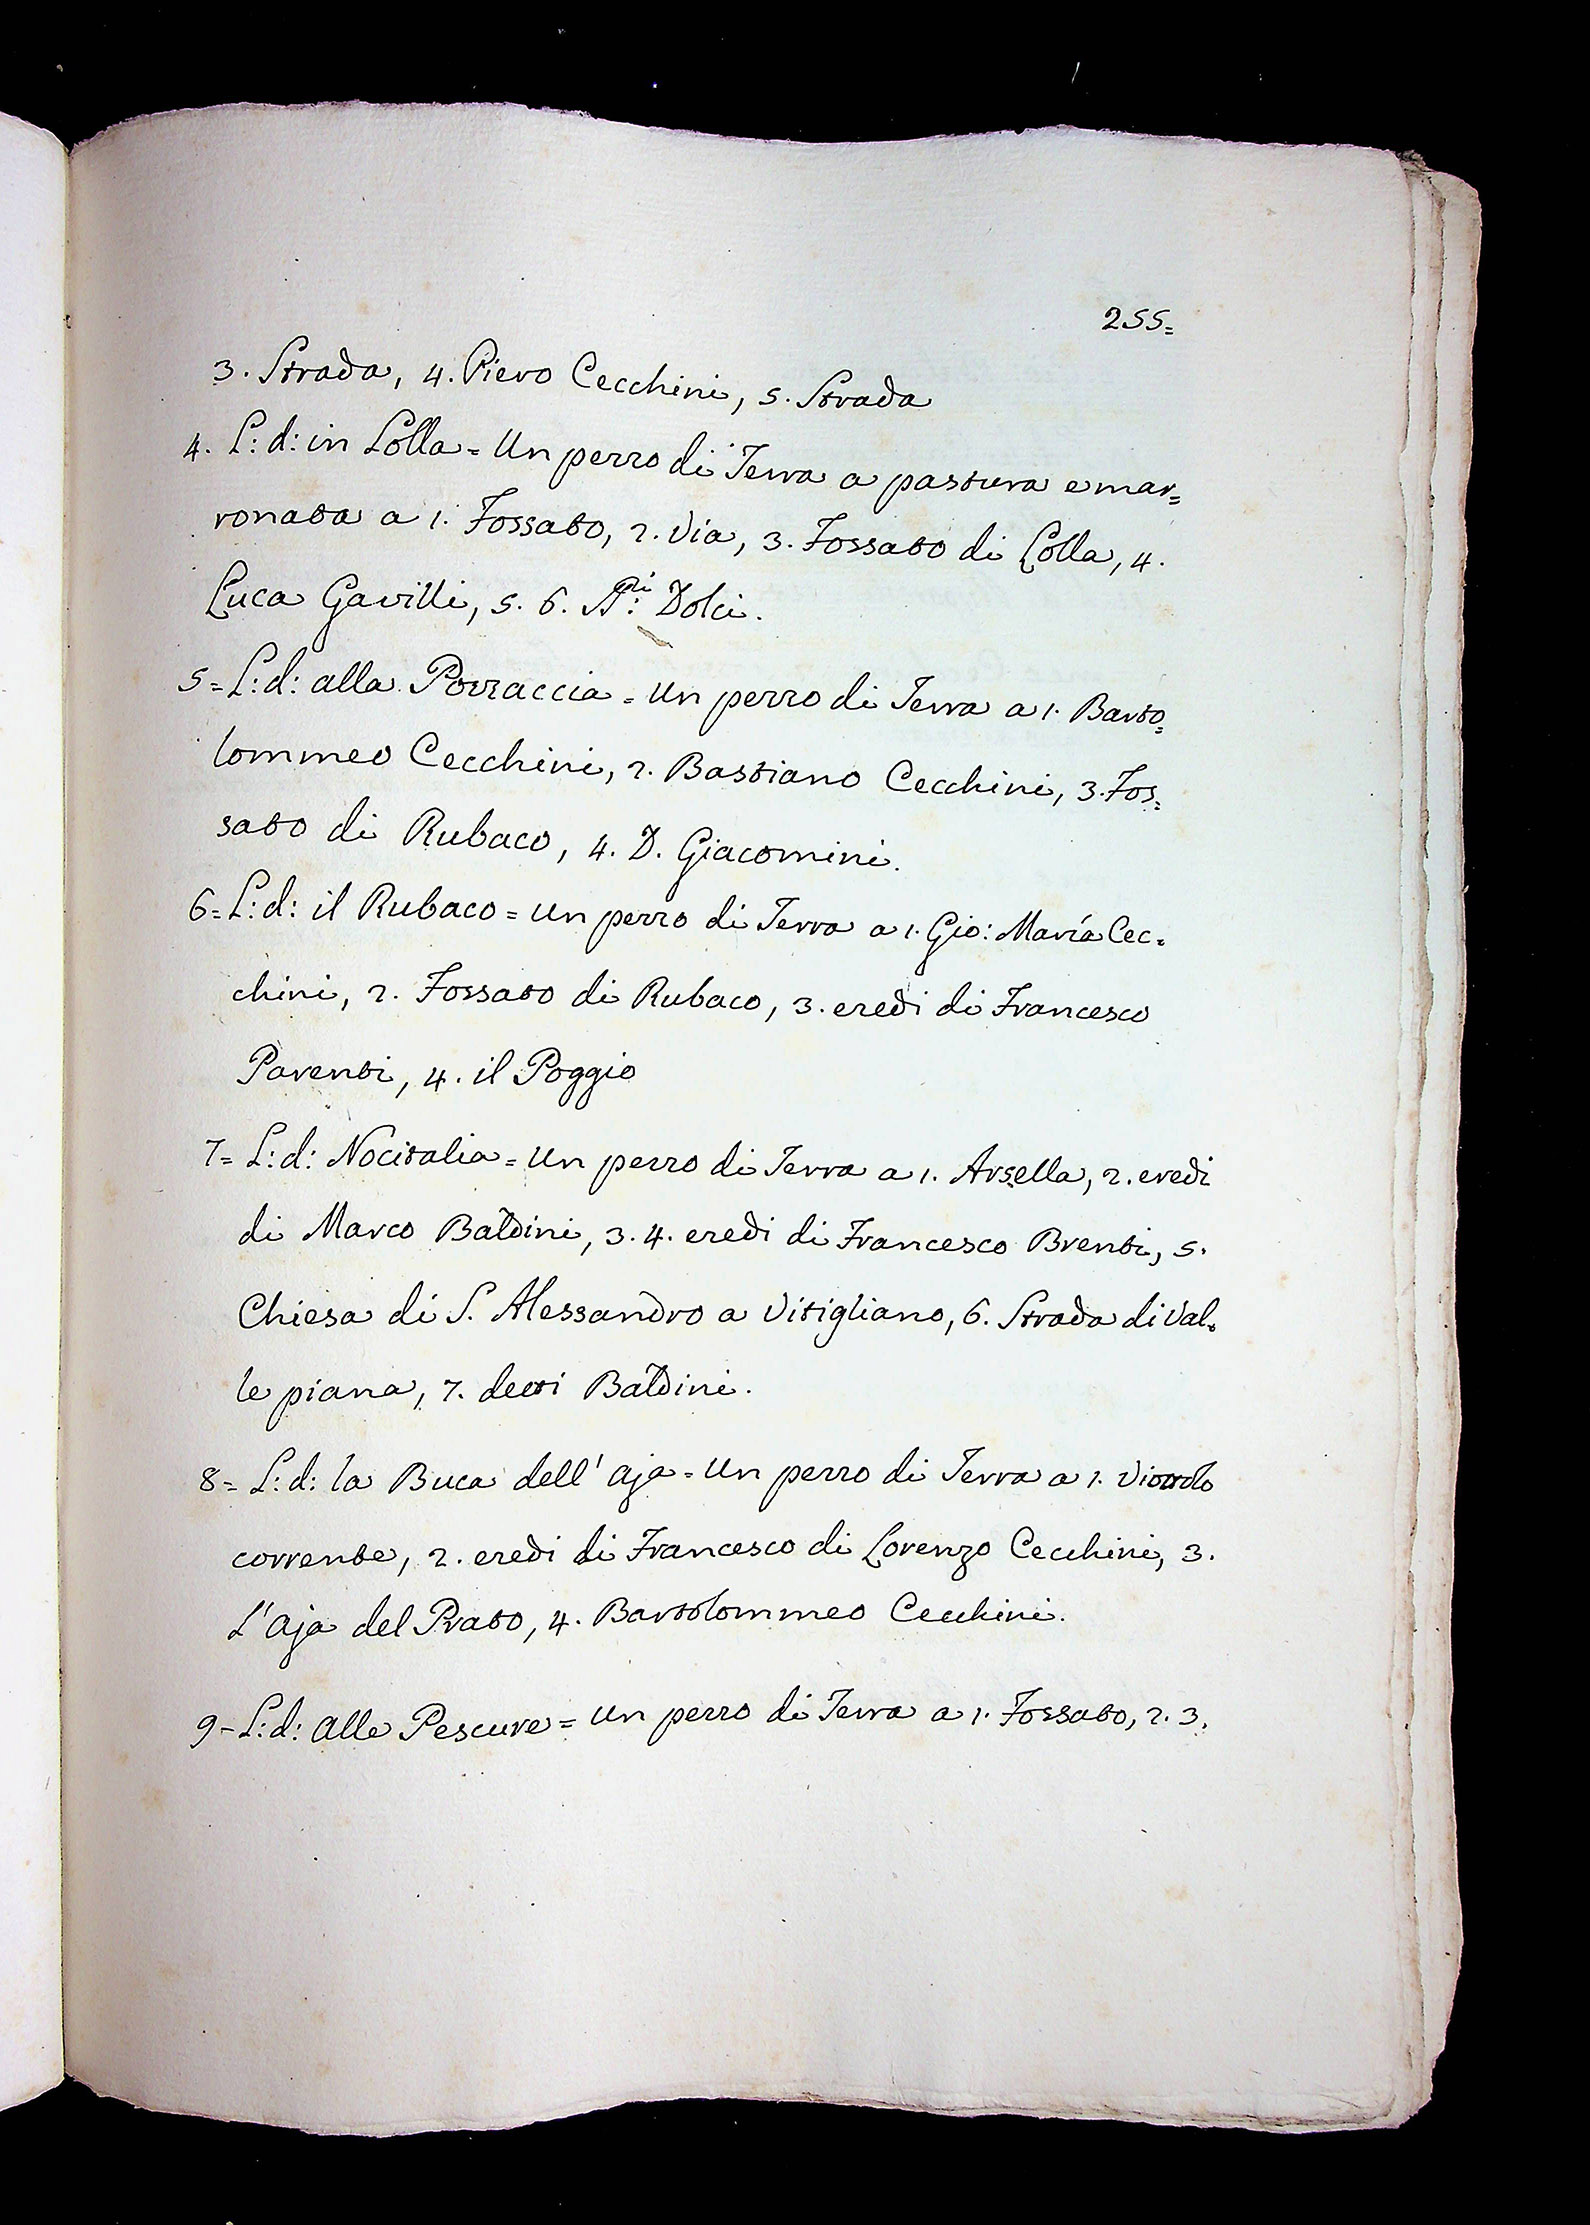 255=
3. Strada, 4. Piero Cecchini, 5. Strada
4. L: d: in Lolla = Un pezzo di Terra a pastura e mar=
ronata a 1. Fossato, 2. Via, 3. Fossato di Lolla, 4.
Luca Gavilli, 5. 6. Dolci.
5= L: d: alla Pozzaccia = Un pezzo di Terra a 1. Barto=
lommeo Cecchini, 2. Bastiano Cecchini, 3. Fos=
sato di Rubaco, 4. D. Giacomini.
6= L: d: il Rubaco = Un pezzo di Terra a 1. Gio: Maria Cec=
chini, 2. Fossato di Rubaco, 3. eredi di Francesco
Parenti, 4. il Poggio
7= L: d: Nocitalia = Un pezzo di Terra a 1. Arsella, 2. eredi
di Marco Baldini, 3. 4. eredi di Francesco Brenti, 5.
Chiesa di S. Alessandro a Vitigliano, 6. Strada di Val=
le piana, 7. detti Baldini.
8= L: d: la Buca dell' Aja = Un pezzo di Terra a 1. Viottolo
corrente, 2. eredi di Francesco di Lorenzo Cecchini, 3.
L'Aja del Prato, 4. Bartolommeo Cecchini.
9- L: d: alle Pescure = Un pezzo di Terra a 1. Fossato, 2. 3.